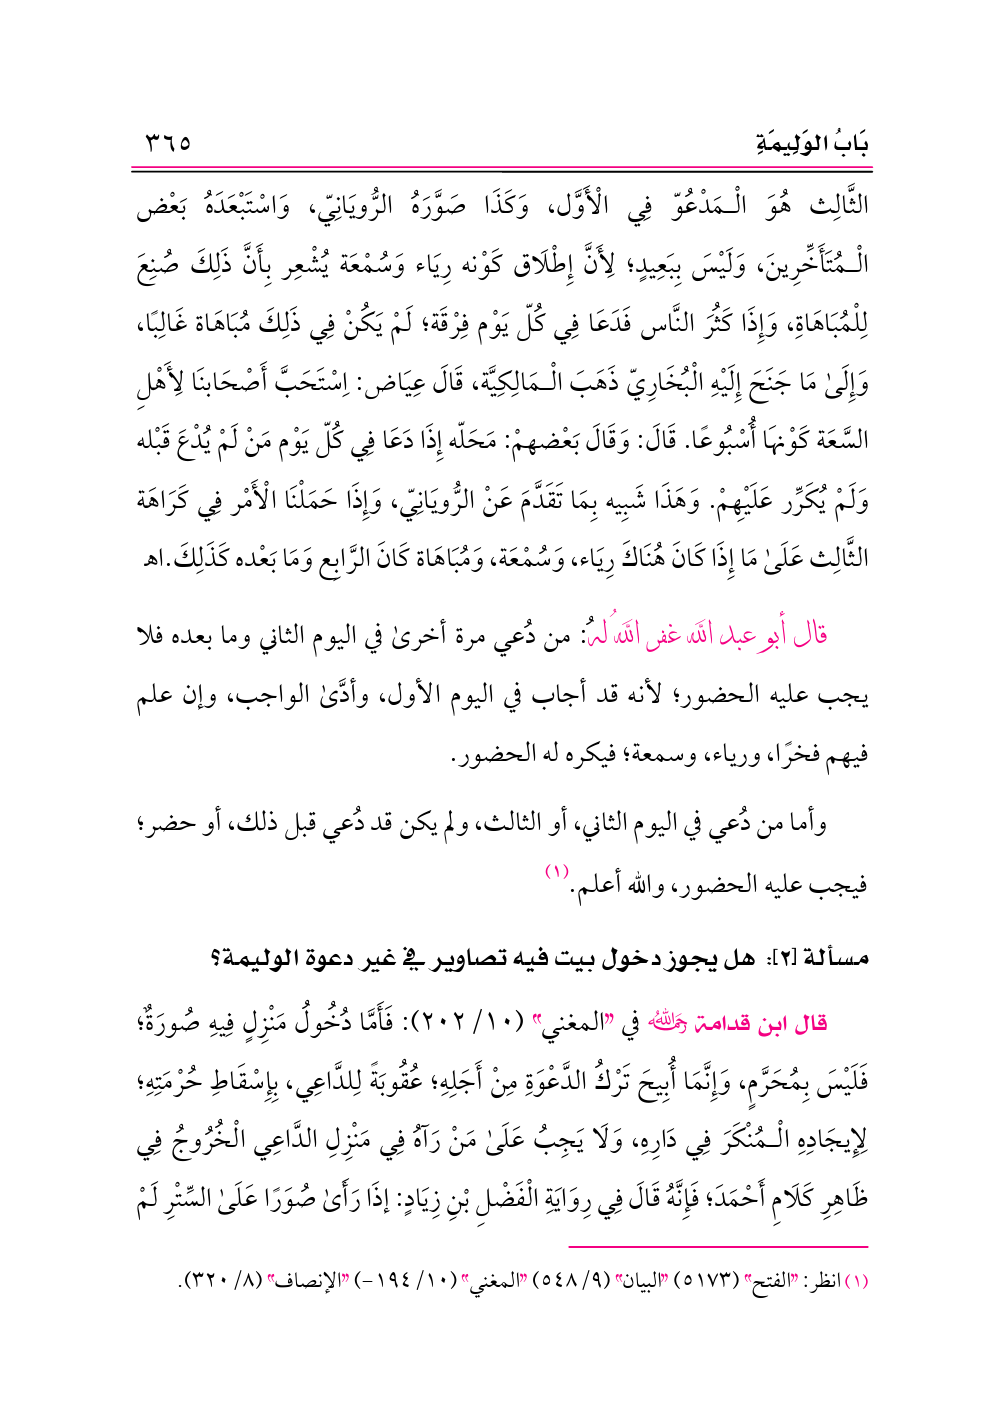 بَابُ الوَلِيمَةِ ٣٦٥
الثَّالِث هُوَ الْـمَدْعُوّ فِي الْأَوَّل، وَكَذَا صَوَّرَهُ الرُّويَانِيّ، وَاسْتَبْعَدَهُ بَعْض
الْـمُتَأَخِّرِينَ، وَلَيْسَ بِبَعِيدٍ؛ لِأَنَّ إِطْلَاق كَوْنه رِيَاء وَسُمْعَة يُشْعِر بِأَنَّ ذَلِكَ صُنِعَ
لِلْمُبَاهَاةِ، وَإِذَا كَثُرَ النَّاس فَدَعَا فِي كُلّ يَوْم فِرْقَة؛ لَمْ يَكُنْ فِي ذَلِكَ مُبَاهَاة غَالِبًا،
وَإِلَىٰ مَا جَنَحَ إِلَيْهِ الْبُخَارِيّ ذَهَبَ الْـمَالِكِيَّة، قَالَ عِيَاض: اِسْتَحَبَّ أَصْحَابنَا لِأَهْلِ
السَّعَة كَوْنهَا أُسْبُوعًا. قَالَ: وَقَالَ بَعْضهمْ: مَحَلّه إِذَا دَعَا فِي كُلّ يَوْم مَنْ لَمْ يُدْعَ قَبْله
وَلَمْ يُكَرِّر عَلَيْهِمْ. وَهَذَا شَبِيه بِمَا تَقَدَّمَ عَنْ الرُّويَانِيّ، وَإِذَا حَمَلْنَا الْأَمْر فِي كَرَاهَة
الثَّالِث عَلَىٰ مَا إِذَا كَانَ هُنَاكَ رِيَاء، وَسُمْعَة، وَمُبَاهَاة كَانَ الرَّابِع وَمَا بَعْده كَذَلِكَ.اهـ
قال أبو عبد الله غفر اللهُ لهُ: من دُعي مرة أخرىٰ في اليوم الثاني وما بعده فلا
يجب عليه الحضور؛ لأنه قد أجاب في اليوم الأول، وأدَّىٰ الواجب، وإن علم
فيهم فخرًا، ورياء، وسمعة؛ فيكره له الحضور.
وأما من دُعي في اليوم الثاني، أو الثالث، ولم يكن قد دُعي قبل ذلك، أو حضر؛
فيجب عليه الحضور، والله أعلم.(١)
مسألة [٢]: هل يجوز دخول بيت فيه تصاوير في غير دعوة الوليمة؟
قال ابن قدامة رحمه الله في "المغني" (١٠/ ٢٠٢): فَأَمَّا دُخُولُ مَنْزِلٍ فِيهِ صُورَةٌ؛
فَلَيْسَ بِمُحَرَّمٍ، وَإِنَّمَا أُبِيحَ تَرْكُ الدَّعْوَةِ مِنْ أَجَلِهِ؛ عُقُوبَةً لِلدَّاعِي، بِإِسْقَاطِ حُرْمَتِهِ؛
لِإِيجَادِهِ الْـمُنْكَرَ فِي دَارِهِ، وَلَا يَجِبُ عَلَىٰ مَنْ رَآهُ فِي مَنْزِلِ الدَّاعِي الْخُرُوجُ فِي
ظَاهِرِ كَلَامِ أَحْمَدَ؛ فَإِنَّهُ قَالَ فِي رِوَايَةِ الْفَضْلِ بْنِ زِيَادٍ: إذَا رَأَىٰ صُوَرًا عَلَىٰ السِّتْرِ لَمْ
(١) انظر: "الفتح" (٥١٧٣) "البيان" (٩/ ٥٤٨) "المغني" (١٠/ ١٩٤-) "الإنصاف" (٨/ ٣٢٠).